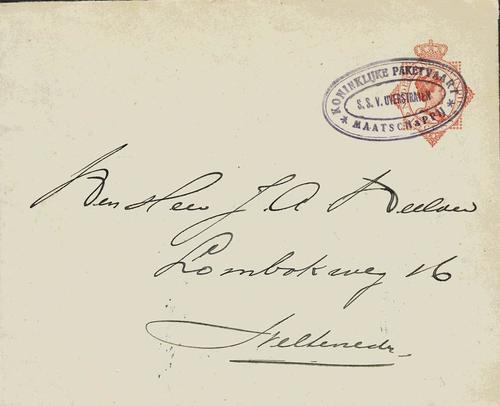 KONINKLIJKE PAKETVAART
S.S. V. OVERSTRATEN
MAATSCHAPPIJ
Den Heer J. A.
Lombokweg 16
Weltevreden